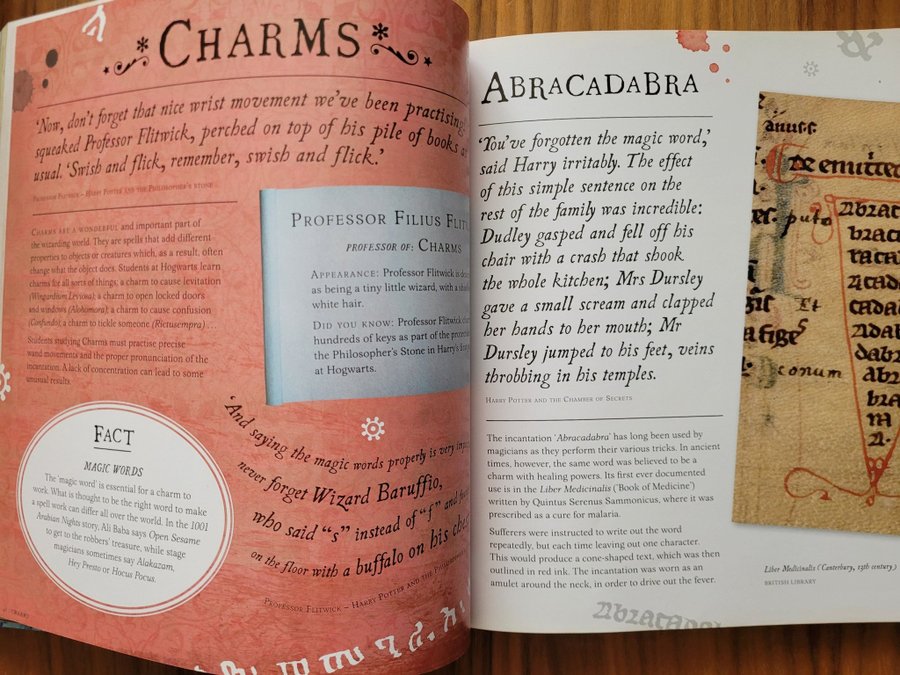 CHARMS
'Now, don't forget that nice wrist movement we've been practising!'
squeaked Professor Flitwick, perched on top of his pile of books as
usual. 'Swish and flick, remember, swish and flick.'
PROFESSOR FLITWICK – HARRY POTTER AND THE PHILOSOPHER'S STONE
CHARMS ARE A WONDERFUL and important part of
the wizarding world. They are spells that add different
properties to objects or creatures which, as a result, often
change what the object does. Students at Hogwarts learn
charms for all sorts of things: a charm to cause levitation
(Wingardium Leviosa); a charm to open locked doors
and windows (Alohomora); a charm to confuse
(Confundo); a charm to tickle someone (Rictusempra) . . .
Students studying Charms must practise precise
wand movements and the proper pronunciation of the
incantation. A lack of concentration can lead to some
unusual results.
PROFESSOR FILIUS FLIT
PROFESSOR OF: CHARMS
APPEARANCE: Professor Flitwick is
as being a tiny little wizard, with a
white hair.
DID YOU KNOW: Professor Flitwick
hundreds of keys as part of the
the Philosopher's Stone in Harry's
at Hogwarts.
'And saying the magic words properly is very
never forget Wizard Baruffio,
who said "s" instead of "f" and
on the floor with a buffalo on his
PROFESSOR FLITWICK – HARRY POTTER AND THE
FACT
MAGIC WORDS
The 'magic word' is essential for a charm to
work. What is thought to be the right word to make
a spell work can differ all over the world. In the 1001
Arabian Nights story, Ali Baba says Open Sesame
to get to the robbers' treasure, while stage
magicians sometimes say Alakazam,
Hey Presto or Hocus Pocus.
ABRACADABRA
'You've forgotten the magic word,'
said Harry irritably. The effect
of this simple sentence on the
rest of the family was incredible:
Dudley gasped and fell off his
chair with a crash that shook
the whole kitchen; Mrs Dursley
gave a small scream and clapped
her hands to her mouth; Mr
Dursley jumped to his feet, veins
throbbing in his temples.
HARRY POTTER AND THE CHAMBER OF SECRETS
The incantation 'Abracadabra' has long been used by
magicians as they perform their various tricks. In ancient
times, however, the same word was believed to be a
charm with healing powers. Its first ever documented
use is in the Liber Medicinalis ('Book of Medicine')
written by Quintus Serenus Sammonicus, where it was
prescribed as a cure for malaria.
Sufferers were instructed to write out the word
repeatedly, but each time leaving out one character.
This would produce a cone-shaped text, which was then
outlined in red ink. The incantation was worn as an
amulet around the neck, in order to drive out the fever.
Liber Medicinalis (Canterbury, 13th century)
BRITISH LIBRARY